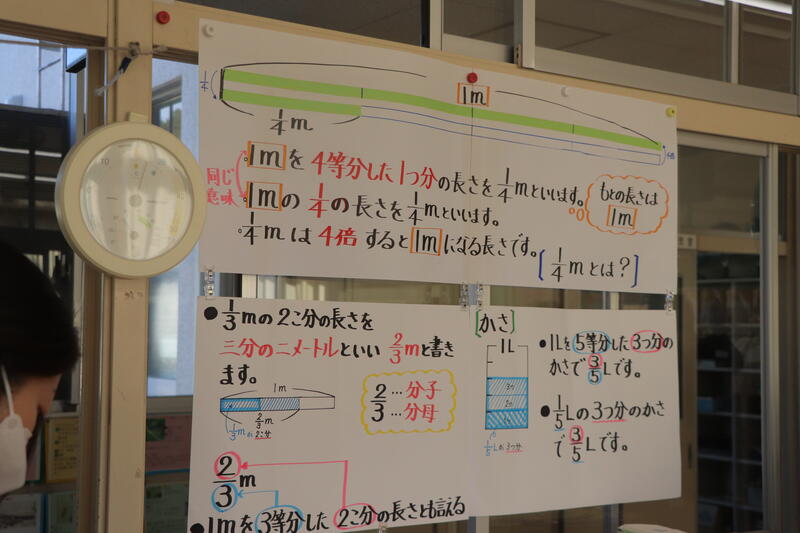 1m
1/4 m
1mを4等分した1つ分の長さを1/4mといいます。
同じ意味
1mの1/4の長さを1/4mといいます。
もとの長さは
1m
1/4mは4倍すると1mになる長さです。
[1/4mとは?]
●1/3mの2こ分の長さを
三分の二メートルといい 2/3mと書き
ます。
1m
2/3m
1/3mの2こ分
2…分子
3…分母
2/3m
●1mを3等分した2こ分の長さとも言える
[かさ]
1L
3つ
2つ
1/5Lの3つ分
●1Lを5等分した3つ分の
かさで3/5Lです。
●1/5Lの3つ分のかさ
で3/5Lです。